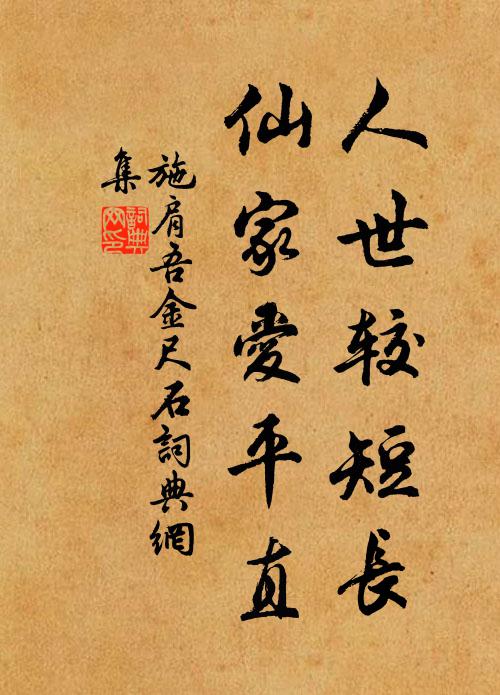 人世较短長
仙家愛平直
施肩吾金尺石詞典網
集
詞典網印